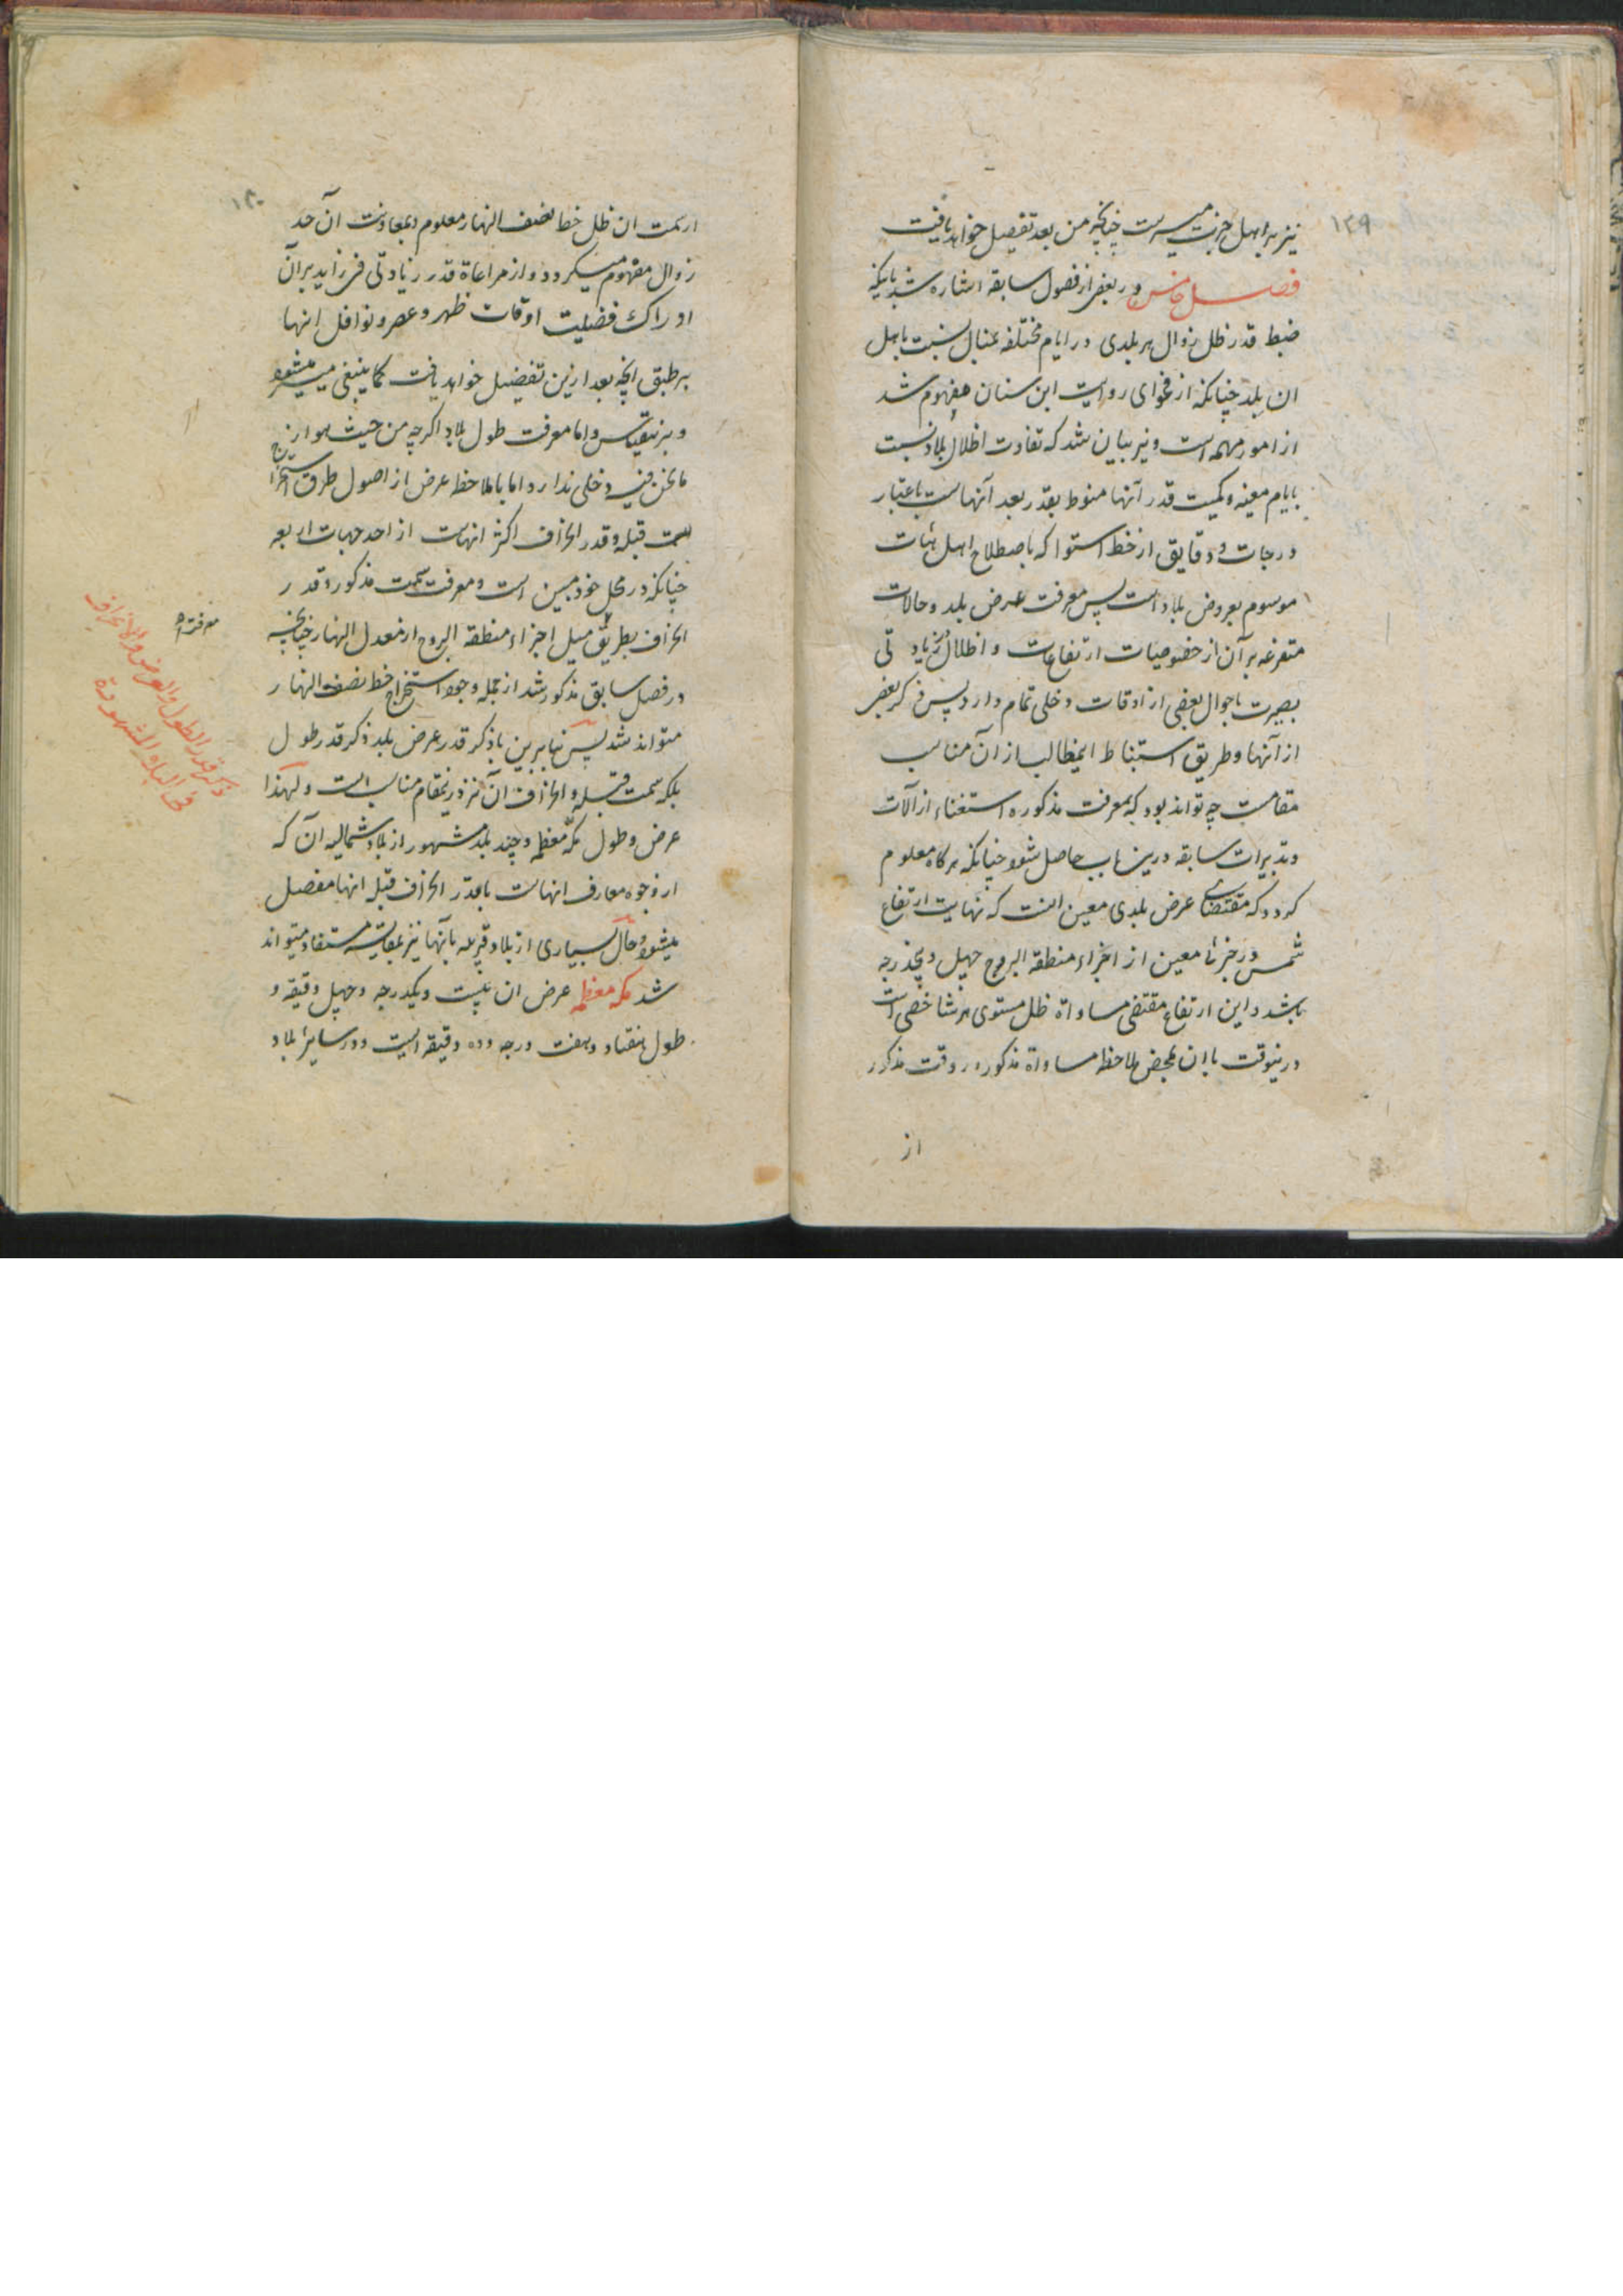 ۱۳۹
نیز بر اهل خبرت میسر است چنانچه من بعد تفصیل خواهد یافت
فصل خامس در بعضی از فصول سابقه اشاره شد باینکه
ضبط قدر ظل زوال هر بلدی در ایام مختلفه عنبال نسبت باهل
ان بلد چنانکه از فحوای روایت ابن سنان مفهوم شد
از امور مهمه است و نیز بیان شد که تفاوت اظلال بلاد نسبت
بایام معینه و کمیت قدر آنها منوط بقدر بعد آنهاست باعتبار
درجات و دقایق از خط استوا که باصطلاح اهل هیات
موسوم بعروض بلاد است پس معرفت عرض بلد و حالات
متفرعه بر آن از خصوصیات ارتفاعات و اظلال و زیادتی
بصیرت باحوال بعضی از اوقات دخلی تمام دارد پس ذکر بعضی
از آنها و طریق استنباط اینمطالب از آن مناسب
مقامست چه تواند بود که بمعرفت مذکوره استغناء از آلات
و تدبیرات سابقه درین باب حاصل شود چنانکه هر گاه معلوم
گردد که مقتضای عرض بلدی معین انست که نهایت ارتفاع
شمس در جزئی معین از اجزاء منطقة البروج چهل و پنجدرجه
باشد و این ارتفاع مقتضی مساواة ظل مستوی هر شاخصی است
درینوقت با ان بمحض ملاحظه مساواة مذکوره در وقت مذکور
از
۱۴۰
از سمت ان ظل خط نصف النهار معلوم و بمعاونت آن حد
زوال مفهوم میگردد و از مراعاة قدر زیادتی فی زاید بر آن
ادراک فضیلت اوقات ظهر و عصر و نوافل انها
بر طبق انچه بعد ازین تفصیل خواهد یافت کما ینبغی میسر میشود
و برینقیاس و اما معرفت طول بلاد اگرچه من حیث هو در
ما نحن فیه دخلی ندارد اما با ملاحظه عرض از اصول طرق استخراج
سمت قبله و قدر انحراف اکثر انهاست از احد جهات اربعه
چنانکه در محل خود مبین است و معرفت سمت مذکور و قدر
انحراف بطریق میل اجزاء منطقة البروج از معدل النهار چنانچه
در فصل سابق مذکور شد از جمله وجوه استخراج خط نصف النهار
متواند شد پس بنابرین با ذکر قدر عرض بلد ذکر قدر طول
بلکه سمت قبله و انحراف آن نیز درینمقام مناسب است و لهذا
عرض و طول مکه معظمه و چند بلد مشهور از بلاد شمالیه آن که
از وجوه معارف انهاست با قدر انحراف قبله انها مفصل
میشود و حال بسیاری از بلاد قریبه بآنها نیز بمقایسه مستفاد میتواند
شد مکه معظمه عرض ان بیست و یکدرجه و چهل دقیقه و
طول هفتاد و هفت درجه و ده دقیقه است و در سایر بلاد
معرفة
ذکر قدر الطول والعرض والانحراف
فی البلاد المشهورة